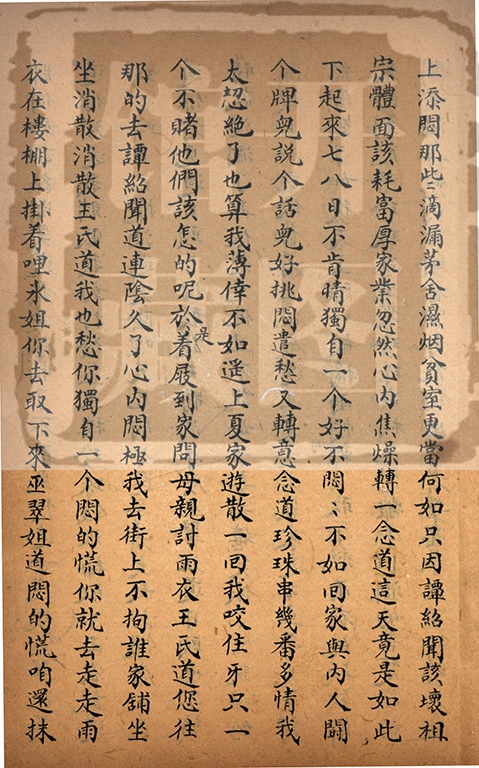 上添悶那些滴漏茅舍濕烟貧室更當何如只因譚紹聞該壞祖
宗體面該耗富厚家業忽然心内焦燥轉一念道這天竟是如此
下起來七八日不肯晴獨自一个好不悶〻不如回家與内人鬭
个牌兒説个話兒好挑悶遣愁又轉意念道珍珠串幾番多情我
太恝絶了也算我薄倖不如遥上夏家遊散一回我咬住牙只一
个不賭他們該怎的呢於是着屐到家問母親討雨衣王氏道您往
那的去譚紹聞道連陰久了心内悶極我去街上不拘誰家舖坐
坐消散消散王氏道我也愁你獨自一个悶的慌你就去走走雨
衣在樓棚上掛着哩氷姐你去取下來巫翠姐道悶的慌咱還抹